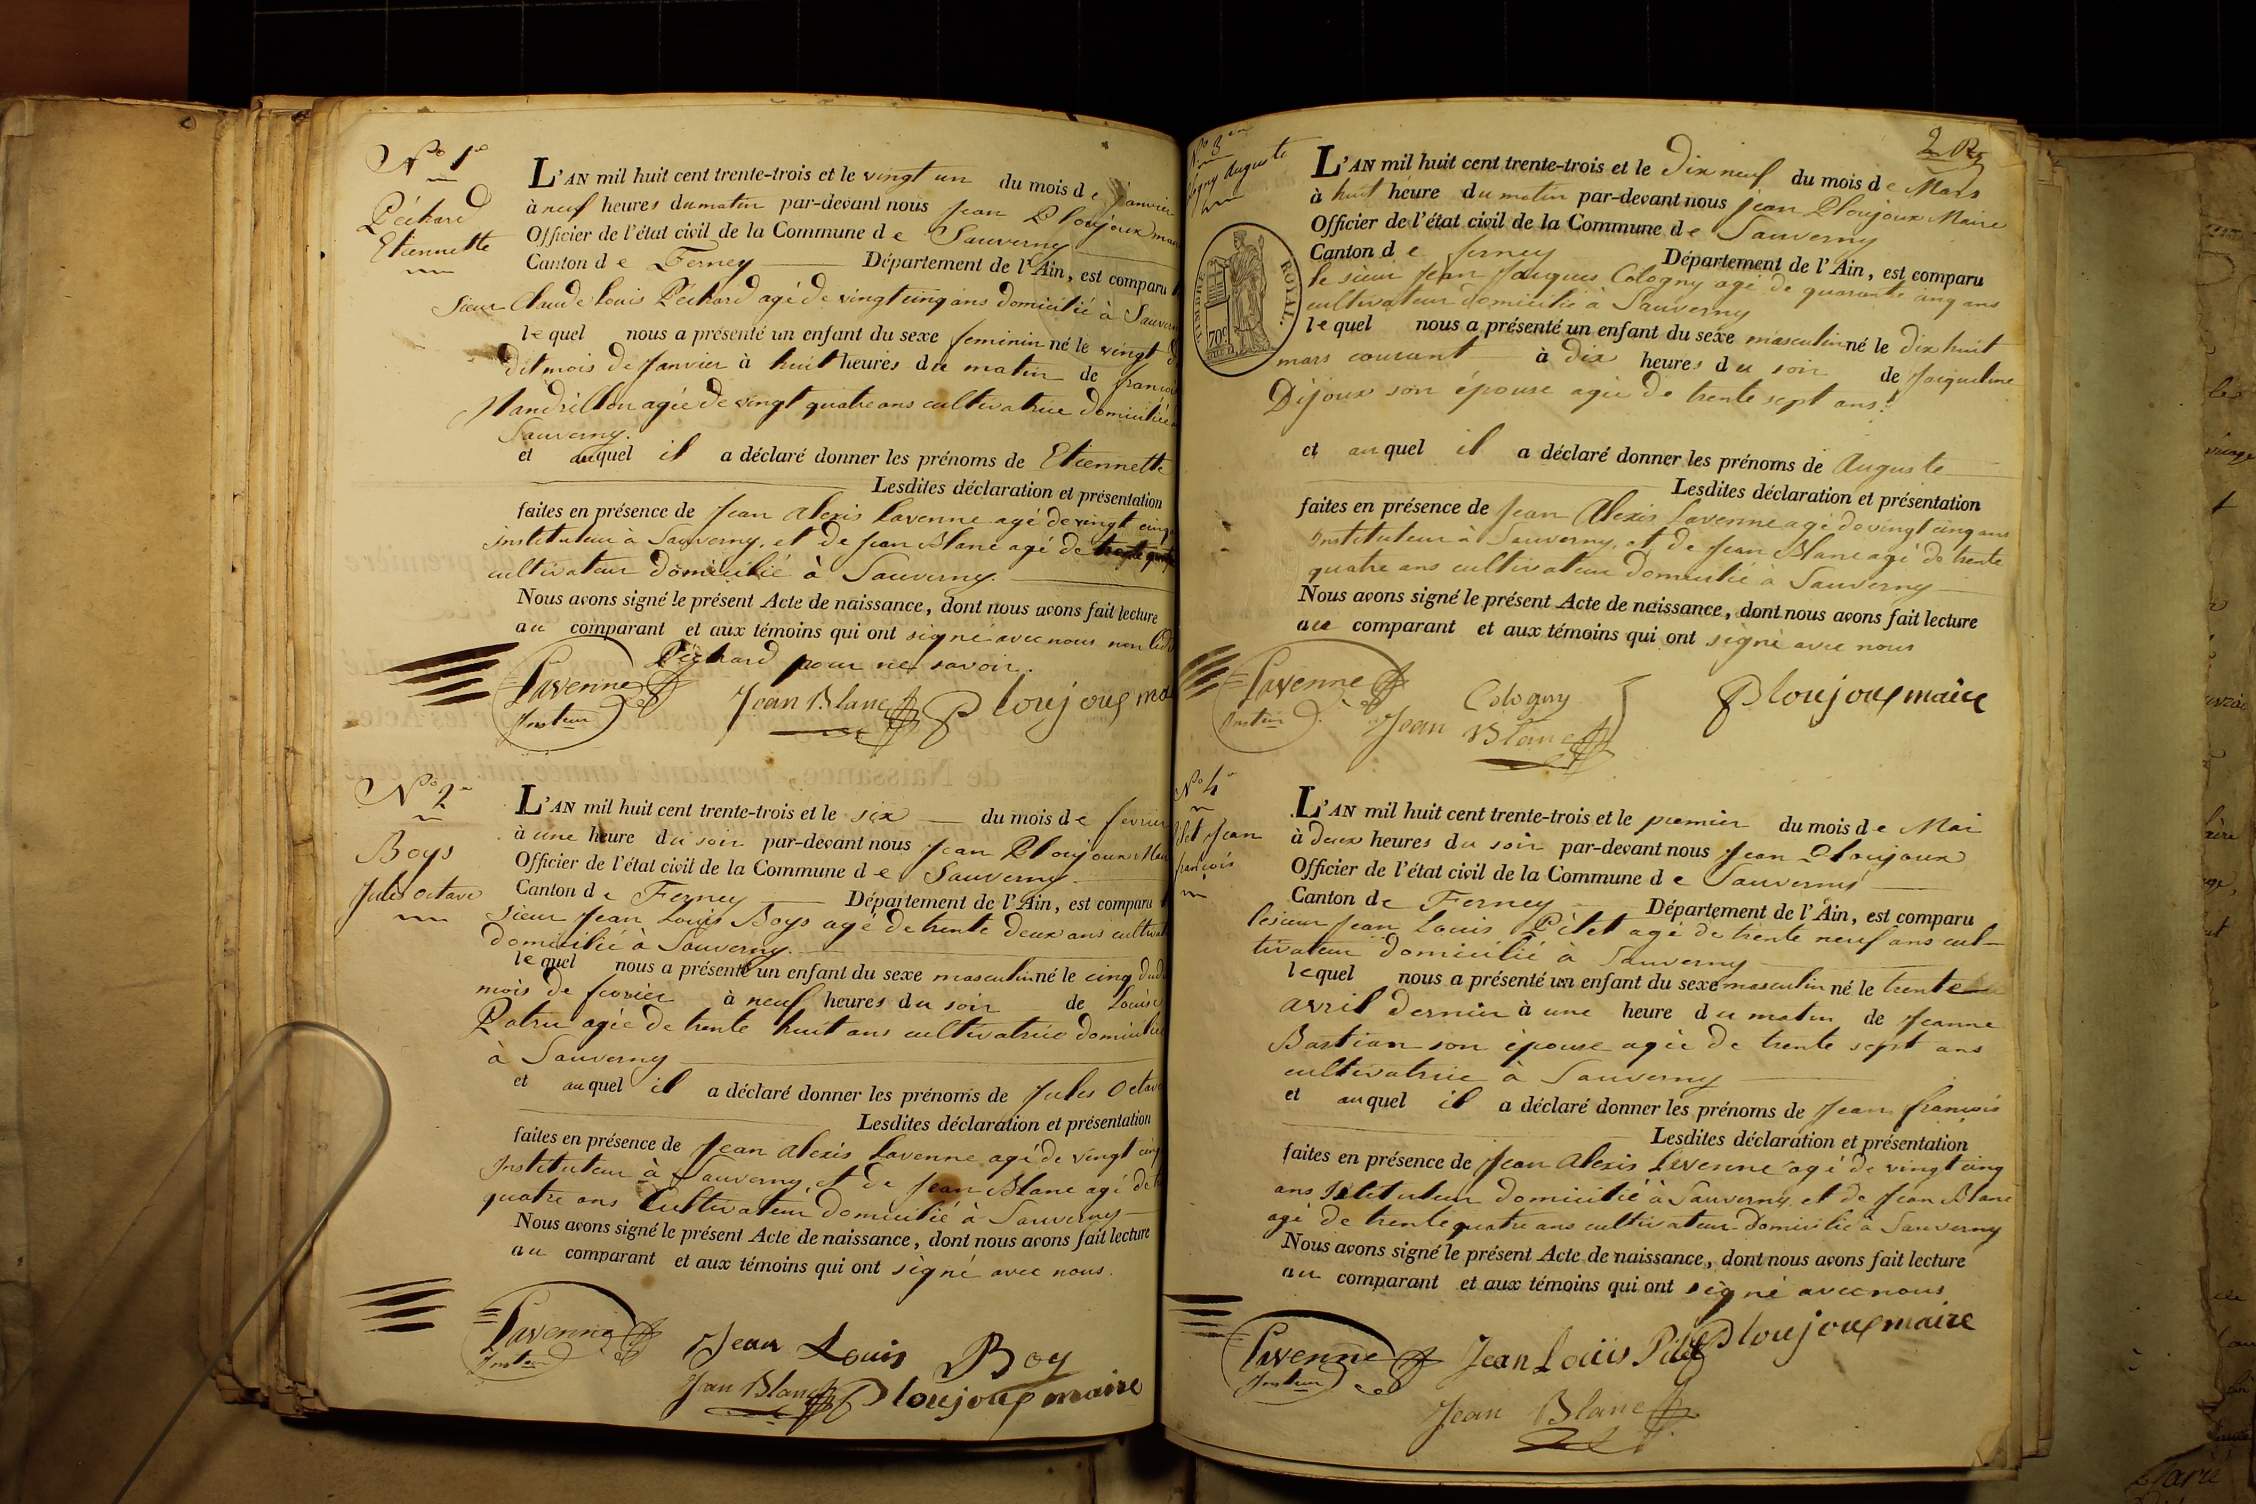 N.o 1.er
Péchard
Etiennette
L'AN mil huit cent trente-trois et le vingt un du mois de Janvier
à neuf heures du matin par-devant nous Jean Ploujoux
Officier de l'état civil de la Commune de Sauverny
Canton de Ferney Département de l'Ain, est comparu
Sieur Claude Louis Péchard agé de vingt cinq ans domicilié à
lequel nous a présenté un enfant du sexe feminin né le vingt
dit mois de Janvier à huit heures du matin de
Mandrillon agée de vingt quatre ans cultivatrice domiciliée
Sauverny.
et auquel il a déclaré donner les prénoms de Etiennette
Lesdites déclaration et présentation
faites en présence de Jean Alexis Lavenne agé de vingt cinq
instituteur à Sauverny, et de Jean Blanc agé de trente
cultivateur domicilié à Sauverny.
Nous avons signé le présent Acte de naissance, dont nous avons fait lecture
au comparant et aux témoins qui ont signé avec nous non
Péchard pour ne savoir.
Lavenne
Insteur
Jean Blanc
Ploujoux
N.o 2
Boys
Jules Octave
L'AN mil huit cent trente-trois et le six du mois de fevrier
à une heure du soir par-devant nous Jean Ploujoux
Officier de l'état civil de la Commune de Sauverny
Canton de Ferney Département de l'Ain, est comparu
Sieur Jean Louis Boys agé de trente deux ans
domicilié à Sauverny.
lequel nous a présenté un enfant du sexe masculin né le cinq
mois de fevrier à neuf heures du soir de Louise
Patru agée de trente huit ans cultivatrice
à Sauverny
et auquel il a déclaré donner les prénoms de Jules Octave
Lesdites déclaration et présentation
faites en présence de Jean Alexis Lavenne agé de vingt
Instituteur à Sauverny, et de Jean Blanc agé de
quatre ans Cultivateur domicilié à Sauverny
Nous avons signé le présent Acte de naissance, dont nous avons fait lecture
au comparant et aux témoins qui ont signé avec nous.
Lavenne
Insteur
Jean Louis Boy
Jean Blanc
Ploujoux maire
2
N.o 3
Auguste
TIMBRE ROYAL.
70c
L'AN mil huit cent trente-trois et le dix neuf du mois de Mars
à huit heure du matin par-devant nous Jean Ploujoux Maire
Officier de l'état civil de la Commune de Sauverny
Canton de ferney Département de l'Ain, est comparu
le sieur Jean Jacques Cologny agé de quarante cinq ans
cultivateur domicilié à Sauverny
lequel nous a présenté un enfant du sexe masculin né le dix huit
mars courant à dix heures du soir de Jacqueline
Dijoux son épouse agée de trente sept ans.
et auquel il a déclaré donner les prénoms de Auguste
Lesdites déclaration et présentation
faites en présence de Jean Alexis Lavenne agé de vingt cinq ans
Instituteur à Sauverny, et de Jean Blanc agé de trente
quatre ans cultivateur domicilié à Sauverny
Nous avons signé le présent Acte de naissance, dont nous avons fait lecture
au comparant et aux témoins qui ont signé avec nous
Lavenne
Insteur
Cologny
Jean Blanc
Ploujoux maire
N.o 4
Jean
françois
L'AN mil huit cent trente-trois et le premier du mois de Mai
à deux heures du soir par-devant nous Jean Ploujoux
Officier de l'état civil de la Commune de Sauverny
Canton de Ferney Département de l'Ain, est comparu
le sieur Jean Louis Pitet agé de trente neuf ans cul-
tivateur domicilié à Sauverny
lequel nous a présenté un enfant du sexe masculin né le trente
avril dernier à une heure du matin de Jeanne
Bastian son épouse agée de trente sept ans
cultivatrice à Sauverny
et auquel il a déclaré donner les prénoms de Jean françois
Lesdites déclaration et présentation
faites en présence de Jean Alexis Lavenne agé de vingt cinq
ans Istituteur domicilié à Sauverny, et de Jean Blanc
agé de trente quatre ans cultivateur domicilié à Sauverny
Nous avons signé le présent Acte de naissance, dont nous avons fait lecture
au comparant et aux témoins qui ont signé avec nous
Lavenne
Insteur
Jean Louis Pitet
Ploujoux maire
Jean Blanc